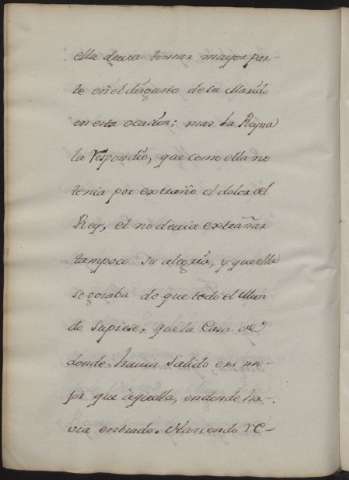 ella devia tomar mayor par-
te en el disgusto de su Marido
en esta ocasion; mas la Reyna
la respondió, que como ella no
tenia por extraño el dolor del
Rey, el no devia extrañar
tampoco su alegria, y que ella
se gozaba de que todo el Mun
do supiese, que la Casa de
donde havia salido era me-
jor que aquella, en donde ha-
via entrado. Haviendo re-